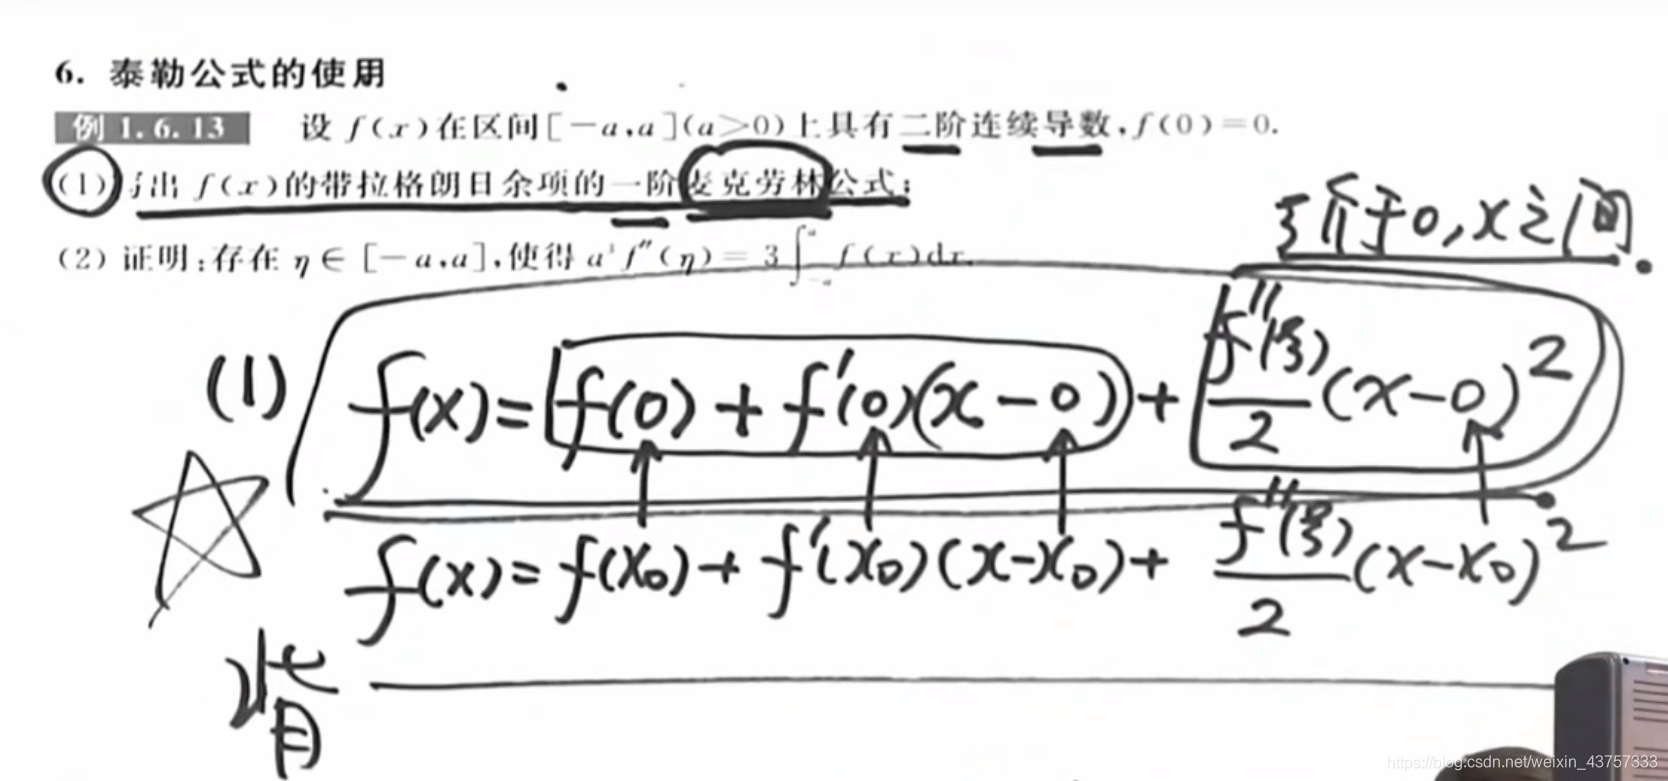 6. 泰勒公式的使用
例 1.6.13 设 f(x)在区间[-a,a](a>0)上具有二阶连续导数,f(0)=0.
(1) 写出 f(x)的带拉格朗日余项的一阶麦克劳林公式;
ξ介于0,x之间.
(2) 证明:存在 η∈[-a,a],使得 a³f″(η)=3∫_{-a}^{a} f(x)dx.
(1) f(x)=f(0)+f′(0)(x-0)+f″(ξ)/2(x-0)²
f(x)=f(x₀)+f′(x₀)(x-x₀)+f″(ξ)/2(x-x₀)²
背
https://blog.csdn.net/weixin_43757333